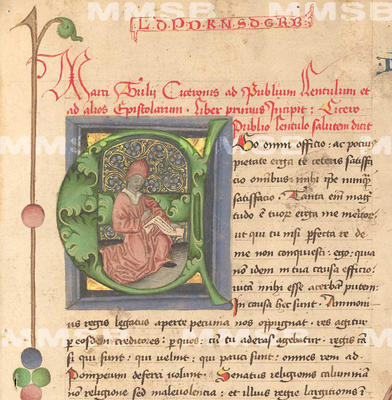 L.D.P.D.R.N.S.D.G.R.B.
Marci Tulij Ciceronis ad Publium lentulum et
ad alios Epistolarum . liber primus Incipit : Cicero
Publio lentulo salutem dicit
Go omni officio : ac pocius
pietate erga te ceteris satisfa
cio omnibus : mihi ipse nunq
satisfacio . Tanta enim mag
tudo e tuor erga me meritor
ut qui tu nisi pfecta re de
me non conquiesti : ego : quia
non idem in tua causa efficio :
uita mihi esse acerba putem :
In causa hec sunt . Ammoni
us regis legatus aperte pecunia nos oppugnat . res agitur
p eosdem creditores : p quos : cu tu aderas agebatur . regis ca
si qui sunt : qui uelint : qui pauci sunt : omnes rem ad
Pompeum deferri uolunt . Senatus religionis calumnia
non religione sed maleuolentia : et illius regie largitionis i